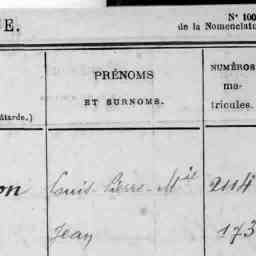 E.
N° 100
de la Nomenclatu
PRÉNOMS
ET SURNOMS.
NUMÉROS
ma-
tricules.
âtarde.)
on Louis Pierre-M^el 2114
Jean 173